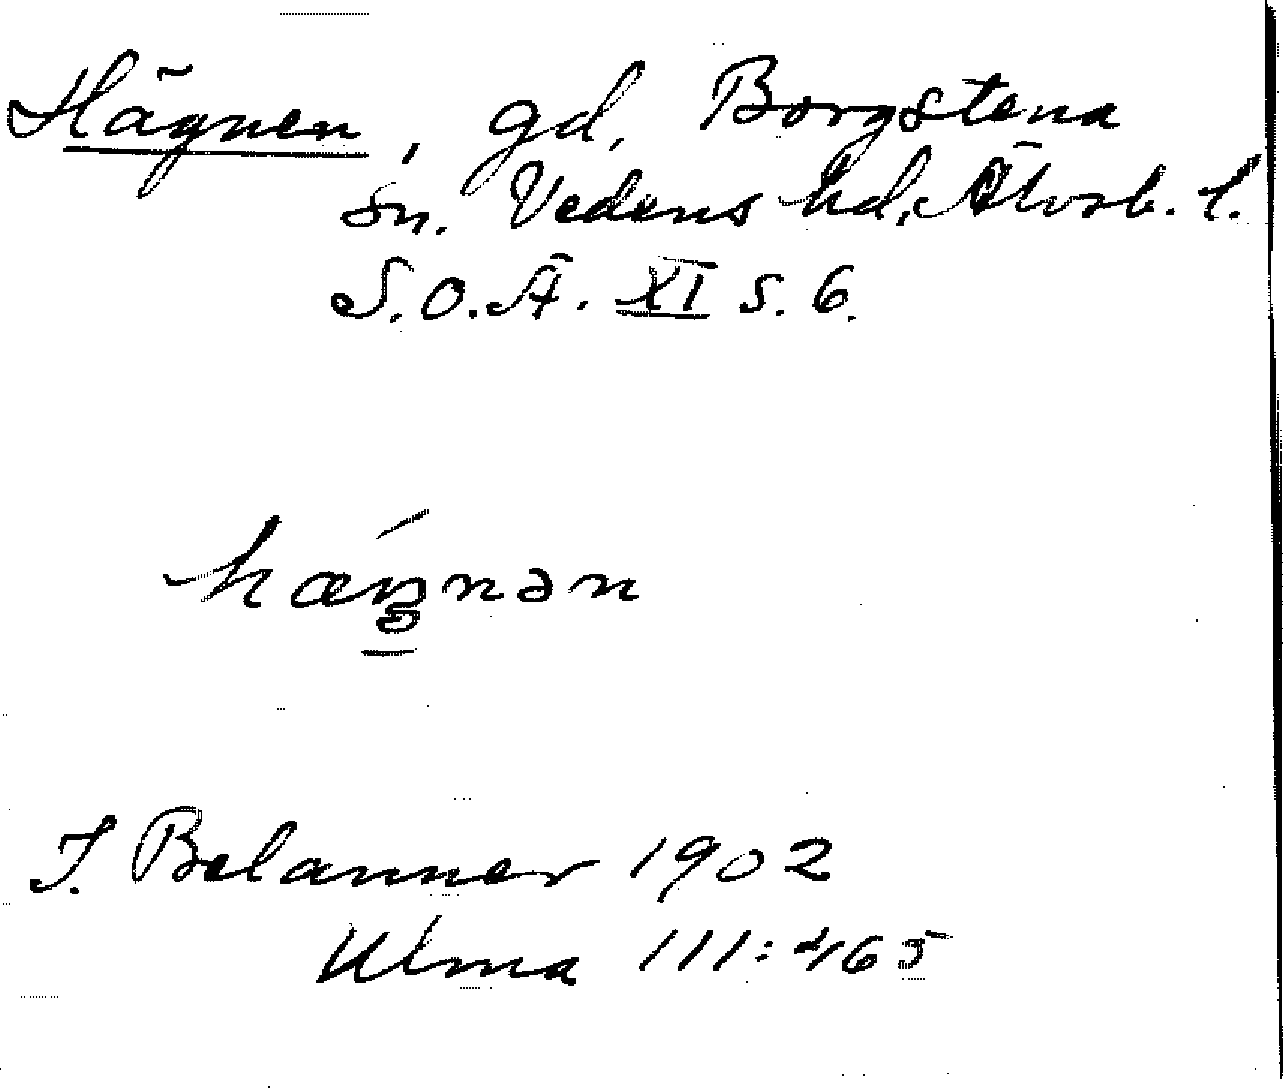 Hägnen, gd, Borgstena
sn. Vedens hd, Älvsb. l.
S.O.Ä. XI s. 6.
J. Belanner 1902
Ulma 111:465